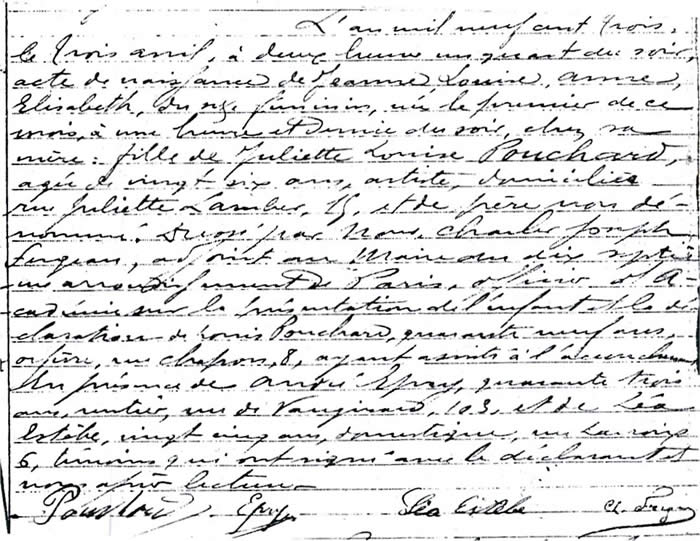 L'an mil neuf cent trois,
le trois avril, à deux heures un quart du soir,
acte de naissance de Jeanne Louise, Anne,
Elisabeth, du sexe féminin, née le premier de ce
mois, à une heure et demie du soir, chez sa
mère: fille de Juliette Louise Pouchard,
agée de vingt six ans, artiste, domiciliée
rue Juliette Lamber, 15, et de père non dé-
nommé. Dressé par Nous, Charles Joseph
adjoint au Maire du dix septiè
me arrondissement de Paris, officier d'A-
cadémie sur la présentation de l'enfant et la dé
claration de Louis Pouchard, quarante neuf ans,
orfèvre, rue Chapon, 8, ayant assisté à l'accouchement
En présence de André Epry, quarante trois
ans, rentier, rue de Vaugirard, 103, et de Léa
Estèbe, vingt cinq ans, domestique, rue
6, témoins qui ont signé avec le déclarant et
nous après lecture.
Pouchard Epry Léa Estèbe Ch.